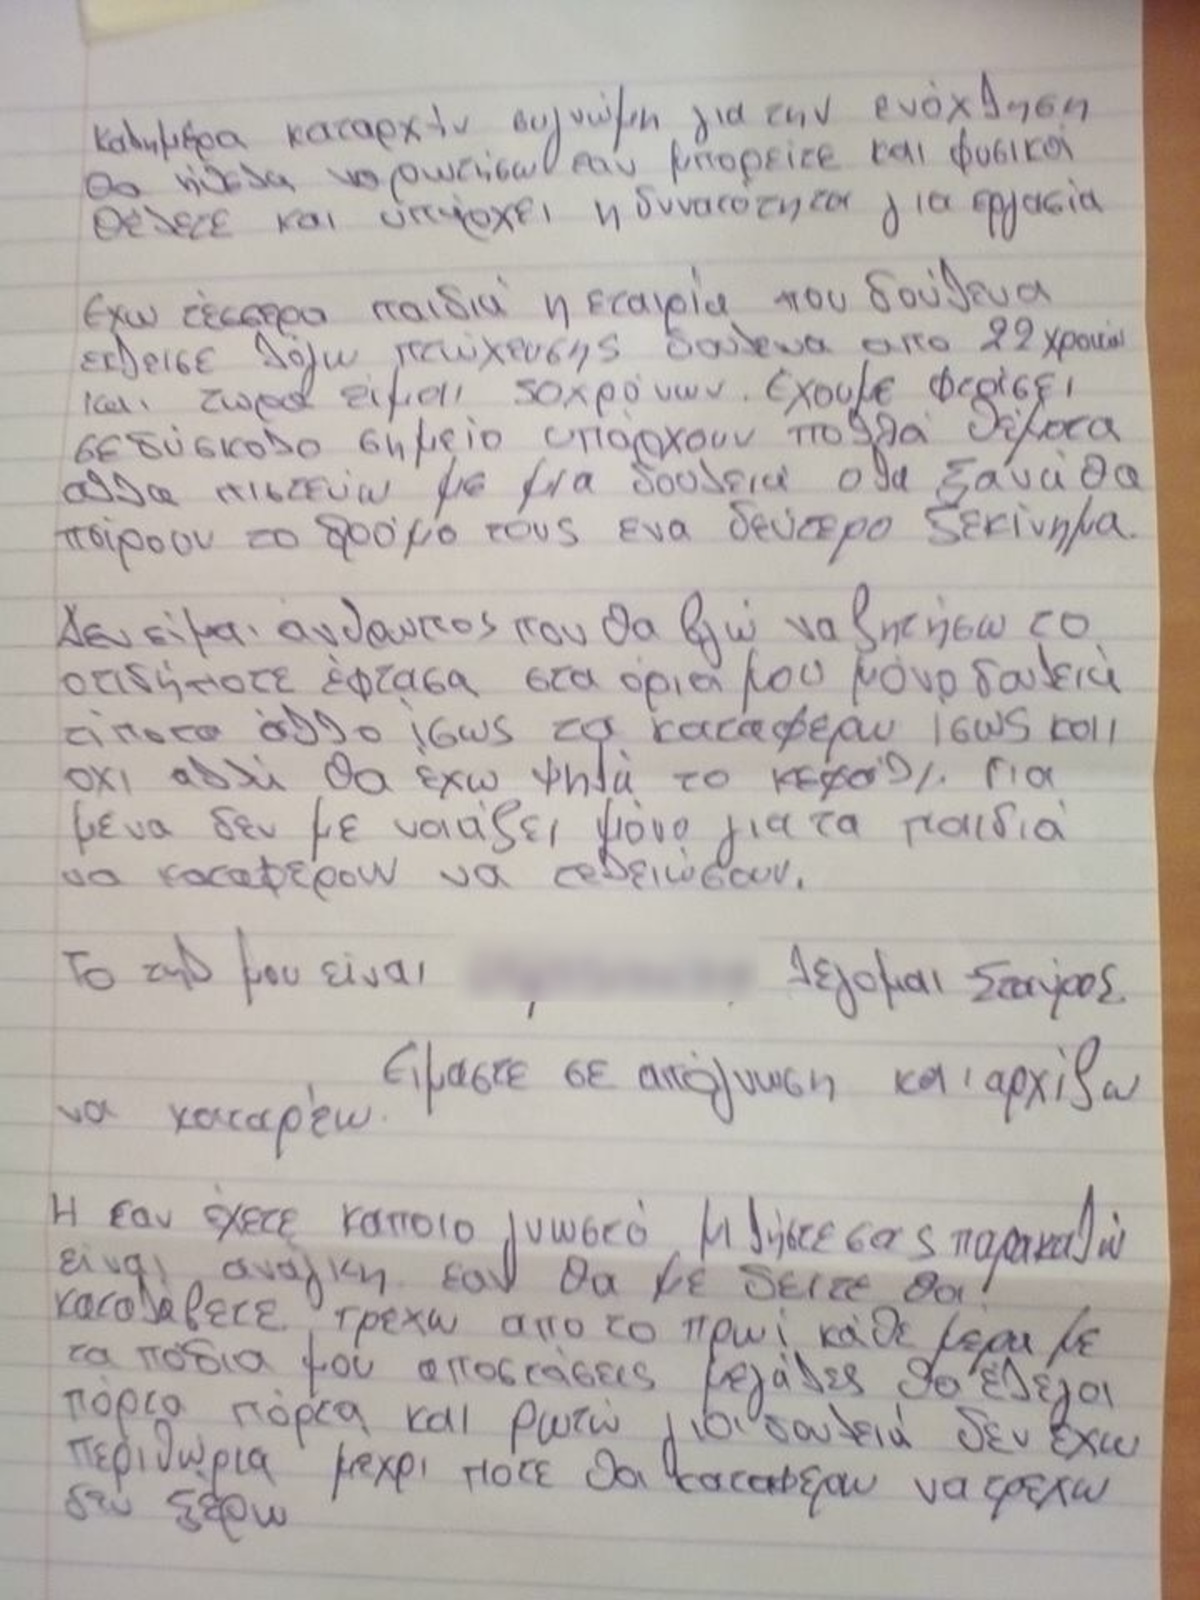 Καλημέρα καταρχήν συγνώμη για την ενόχληση
θα ήθελα να ρωτήσω εαν μπορείτε και φυσικά
θέλετε και υπάρχει η δυνατότητα για εργασία
Εχω τέσσερα παιδιά η εταιρία που δούλευα
εκλεισε λόγω πτώχευσης δουλευα απο 22 χρονών
και τωρα είμαι 50 χρόνων. Εχουμε φτασει
σε δύσκολο σημείο υπάρχουν πολλά θέματα
αλλα πιστεύω με μια δουλειά ολα ξανά θα
πάρουν το δρόμο τους ενα δεύτερο ξεκίνημα.
Δεν είμαι άνθρωπος που θα βγώ να ζητήσω το
οτιδήποτε έφτασα στα όρια μου μόνο δουλειά
τίποτα άλλο ίσως τα καταφέρω ίσως και
όχι αλλά θα έχω ψηλά το κεφάλι. Για
μένα δεν με νοιάζει μόνο για τα παιδιά
να καταφέρουν να τελειώσουν.
Το τηλ μου είναι Λέγομαι Σταύρος
Είμαστε σε απόγνωση και αρχίζω
να καταρέω.
Η εαν έχετε κάποιο γνωστό μιλήστε σας παρακαλώ
είναι ανάγκη εαν θα με δείτε θα
καταλάβετε τρέχω απο το πρωί κάθε μερα με
τα πόδια μου αποστάσεις μεγάλες θα έλεγα
πόρτα πόρτα και ρωτώ για δουλειά δεν έχω
περιθώρια μεχρι ποτε θα καταφέρω να τρέχω
δεν ξέρω